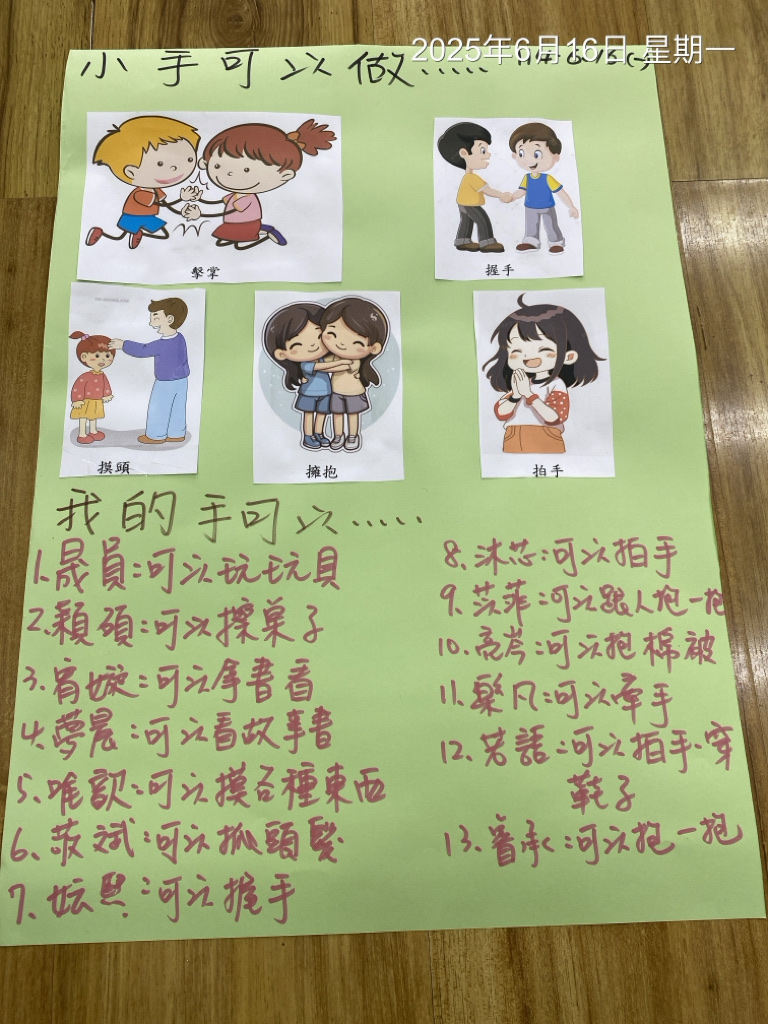 2025年6月16日 星期一
小手可以做.....
擊掌
握手
摸頭
擁抱
拍手
我的手可以.....
1.晟員:可以玩玩具
2.穎碩:可以擦桌子
3.宥嫙:可以拿書看
4.夢晨:可以看故事書
5.唯歆:可以摸各種東西
6.敬斌:可以抓頭髮
7.妘熙:可以握手
8.沐芯:可以拍手
9.苡菲:可以跟人抱一抱
10.亮岑:可以抱棉被
11.樂凡:可以牽手
12.若語:可以拍手、穿
鞋子
13.睿承:可以抱一抱